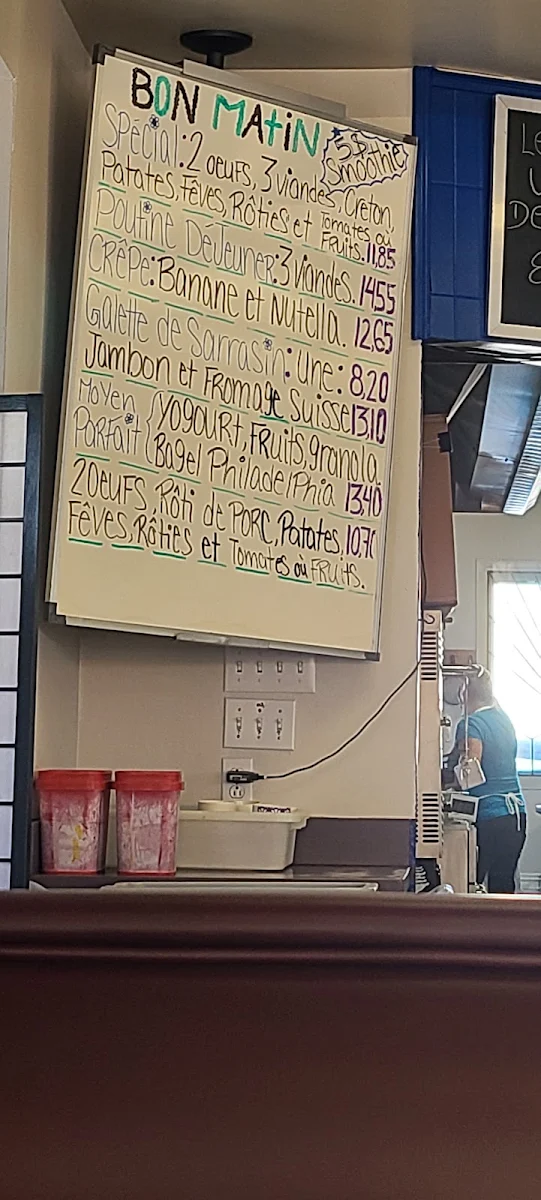 BON MAtiN
5$
Smoothie
Spécial: 2 oeufs, 3 viandes, Creton,
Patates, Fêves, Rôties et Tomates où
Fruits. 11.85
Poutine Déjeuner: 3 viandes. 14.55
Crêpe: Banane et Nutella. 12.65
Galette de Sarrasin: une: 8.20
Jambon et Fromage Suisse 13.10
Moyen { Yogourt, Fruits, granola,
Parfait { Bagel Philadelphia 13.40
2 Oeufs, Rôti de Porc, Patates, 10.70
Fêves, Rôties et Tomates où Fruits.